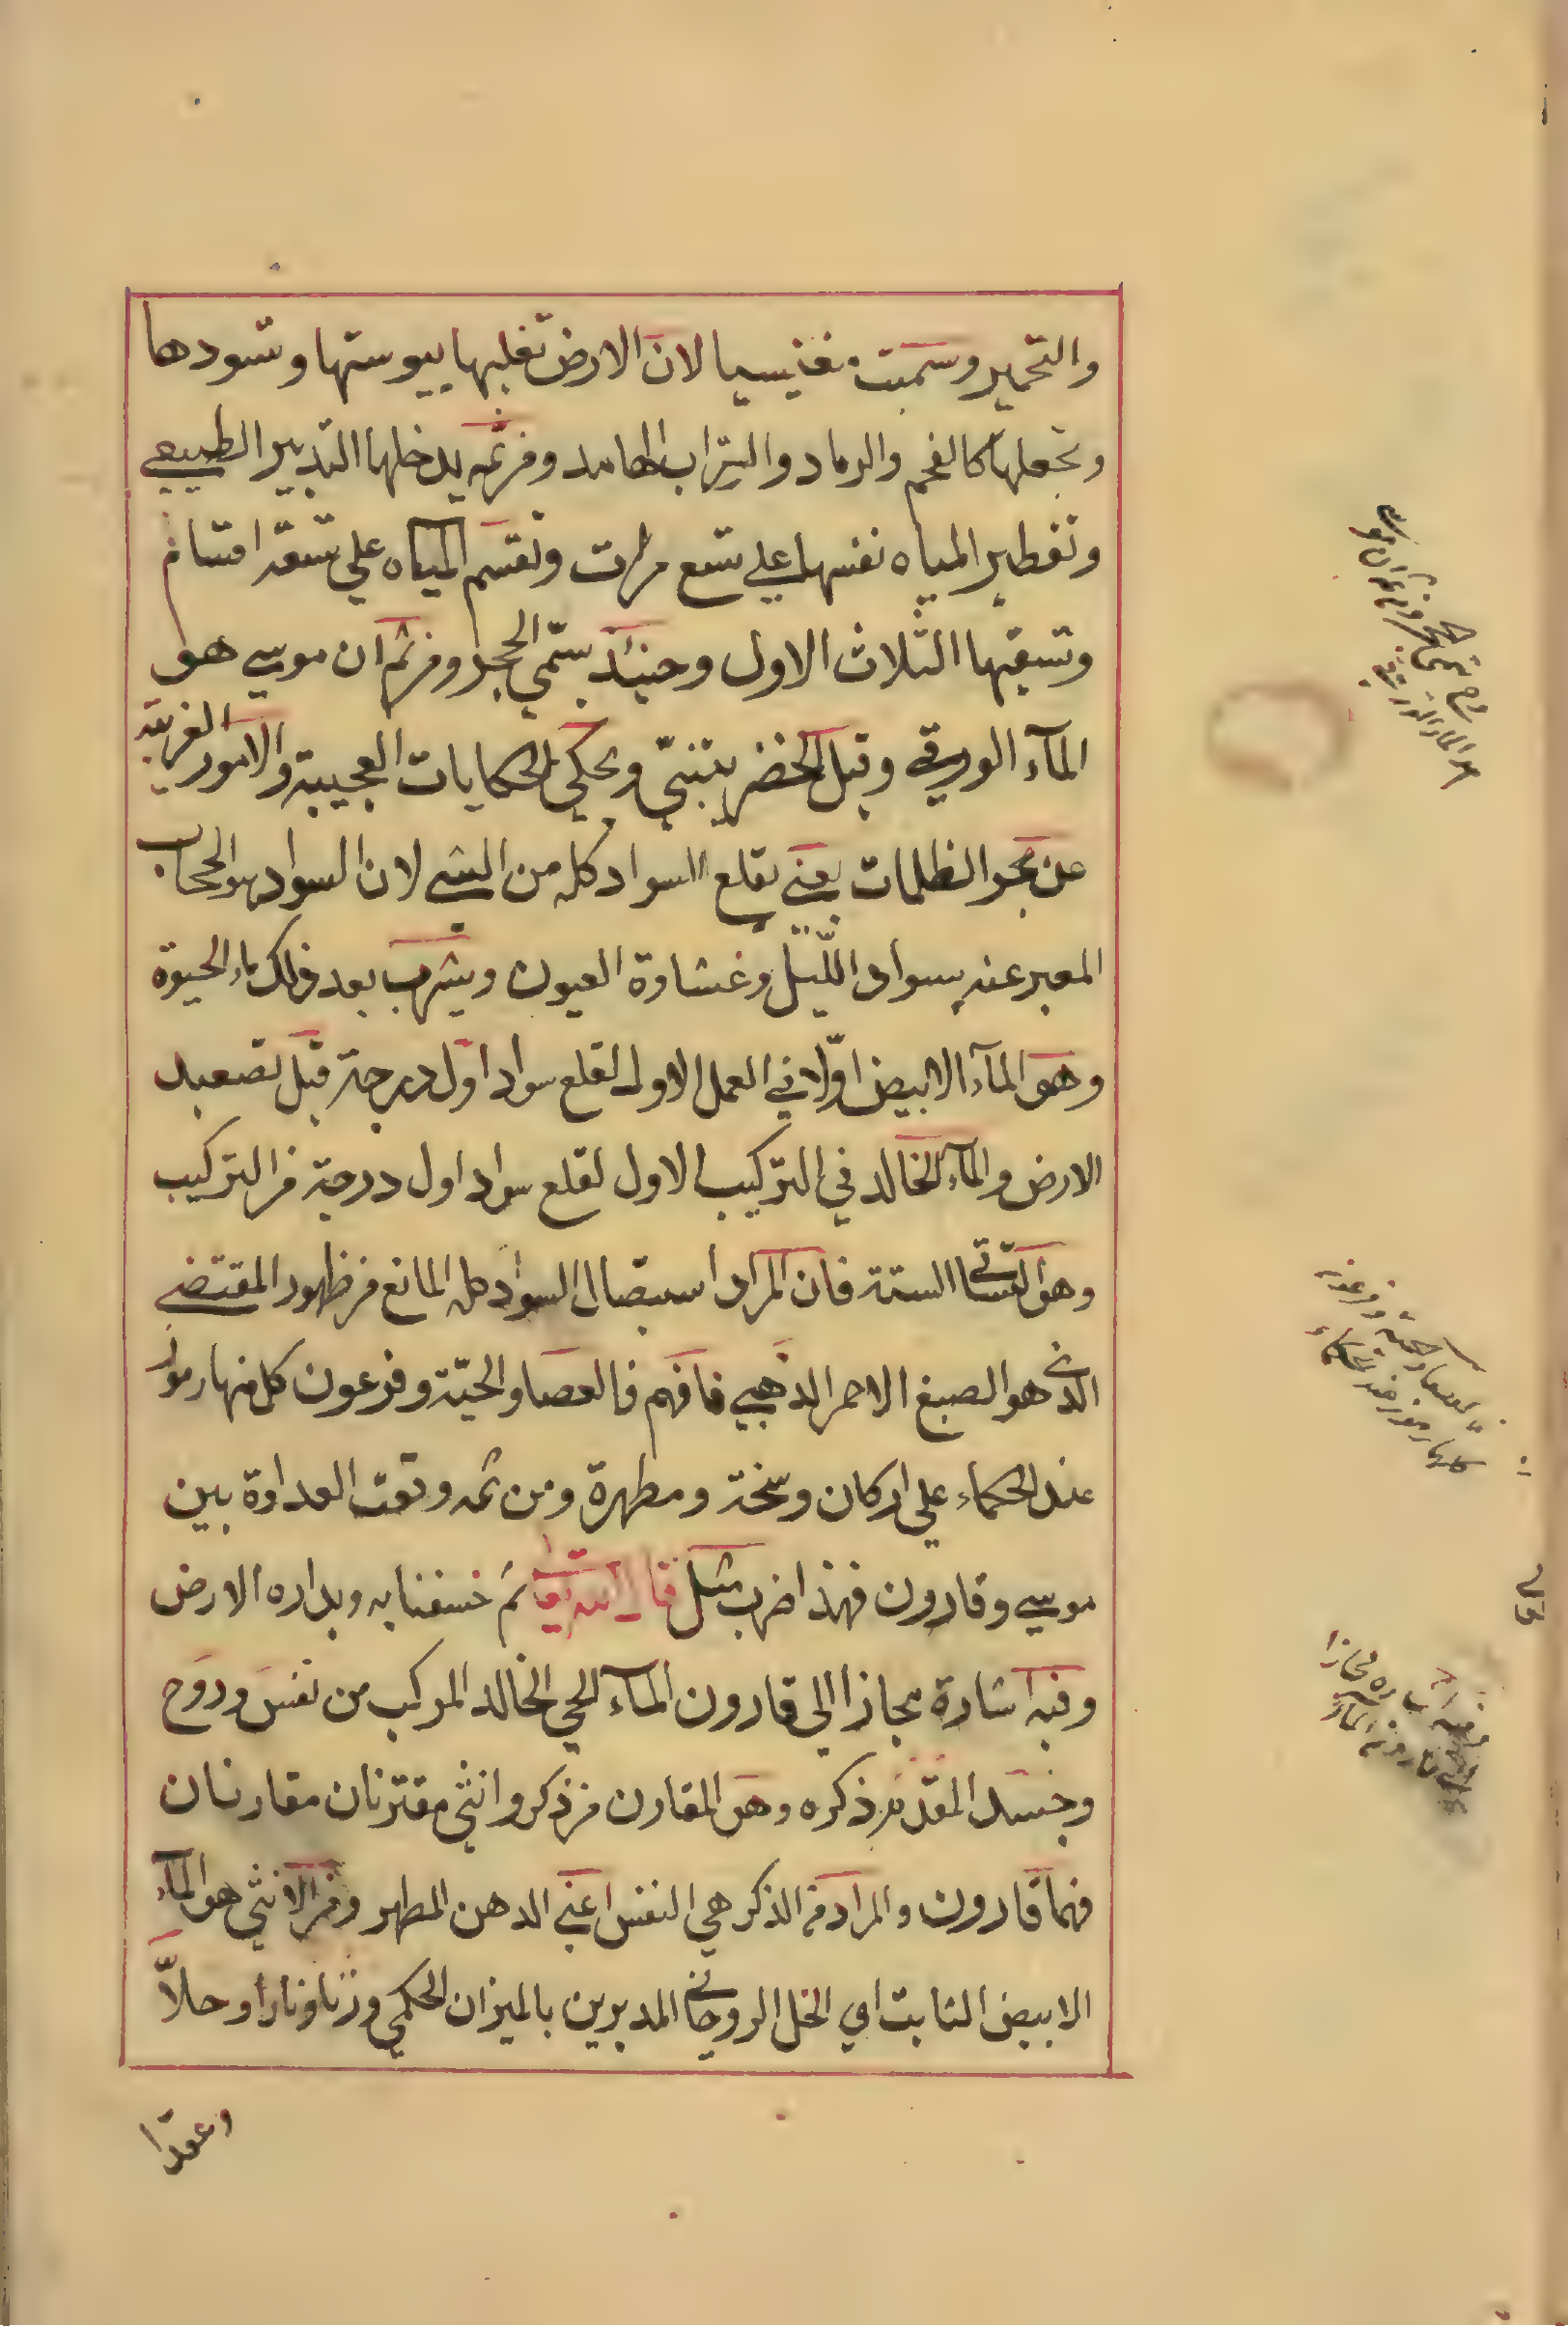 والتحمير وسميت مغنيسيا لان الارض تغلبها بيبوستها وتسودها
وتجعلها كالفحم والرماد والتراب الهامد ومن ثمه يدخلها التدبير الطبيعي
وتقطير المياه نفسها علي تسع مرات وتقسم المياه علي تسعة اقسام
وتسقيها الثلاث الاول وحينئذ يسمي الحجر ومن ثم ان موسي هو
المآء الورقي وقيل الخضر يتنبّي ويحكي الحكايات العجيبة والامور الغريبة
عن بحر الظلمات يعني يقلع السواد كله من الشي لان السواد هو الحجاب
المعبر عنه بسواد اللّيل وغشاوة العيون ويشرب بعد ذلك ماء الحيوة
وهو المآء الابيض اوّلا في العمل الاول لقلع سواد اول درجة قبل تصعيد
الارض والمآء الخالد في التركيب الاول لقلع سواد اول درجة من التركيب
وهو التساقي الستة فان المراد استيصال السواد كله المانع من ظهور المقتضي
الذي هو الصبغ الاحمر الذهبي فافهم فالعصا والحيّة وفرعون كل منها رموز
عند الحكماء علي اركان وسخة ومطهرة ومن ثمه وقعت العداوة بين
موسي وقارون فهذا ضرب مثل قال الله تعا ثم خسفنا به وبداره الارض
وفيه اشارة مجازا الي قارون المآء الحي الخالد المركب من نفس وروح
وجسد المقدّم ذكره وهو المقارن من ذكر وانثي مقترنان مقارنان
فهما قارون والمراد من الذكر هي النفس اعني الدهن المطهر ومن الانثي هو المآء
الابيض الثابت اي الخل الروحاني المدبرين بالميزان الحكمي وزنا ونارا وحلاّ
وعقدا